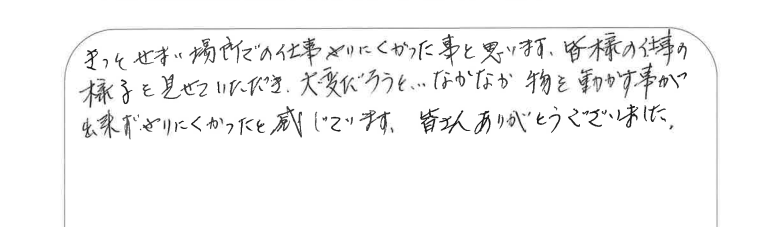 きっとせまい場所での仕事やりにくかった事と思います、皆様の仕事の
様子を見せていただき、大変だろうと…なかなか物を動かす事が
出来ずやりにくかったと感じています、皆さんありがとうございました。